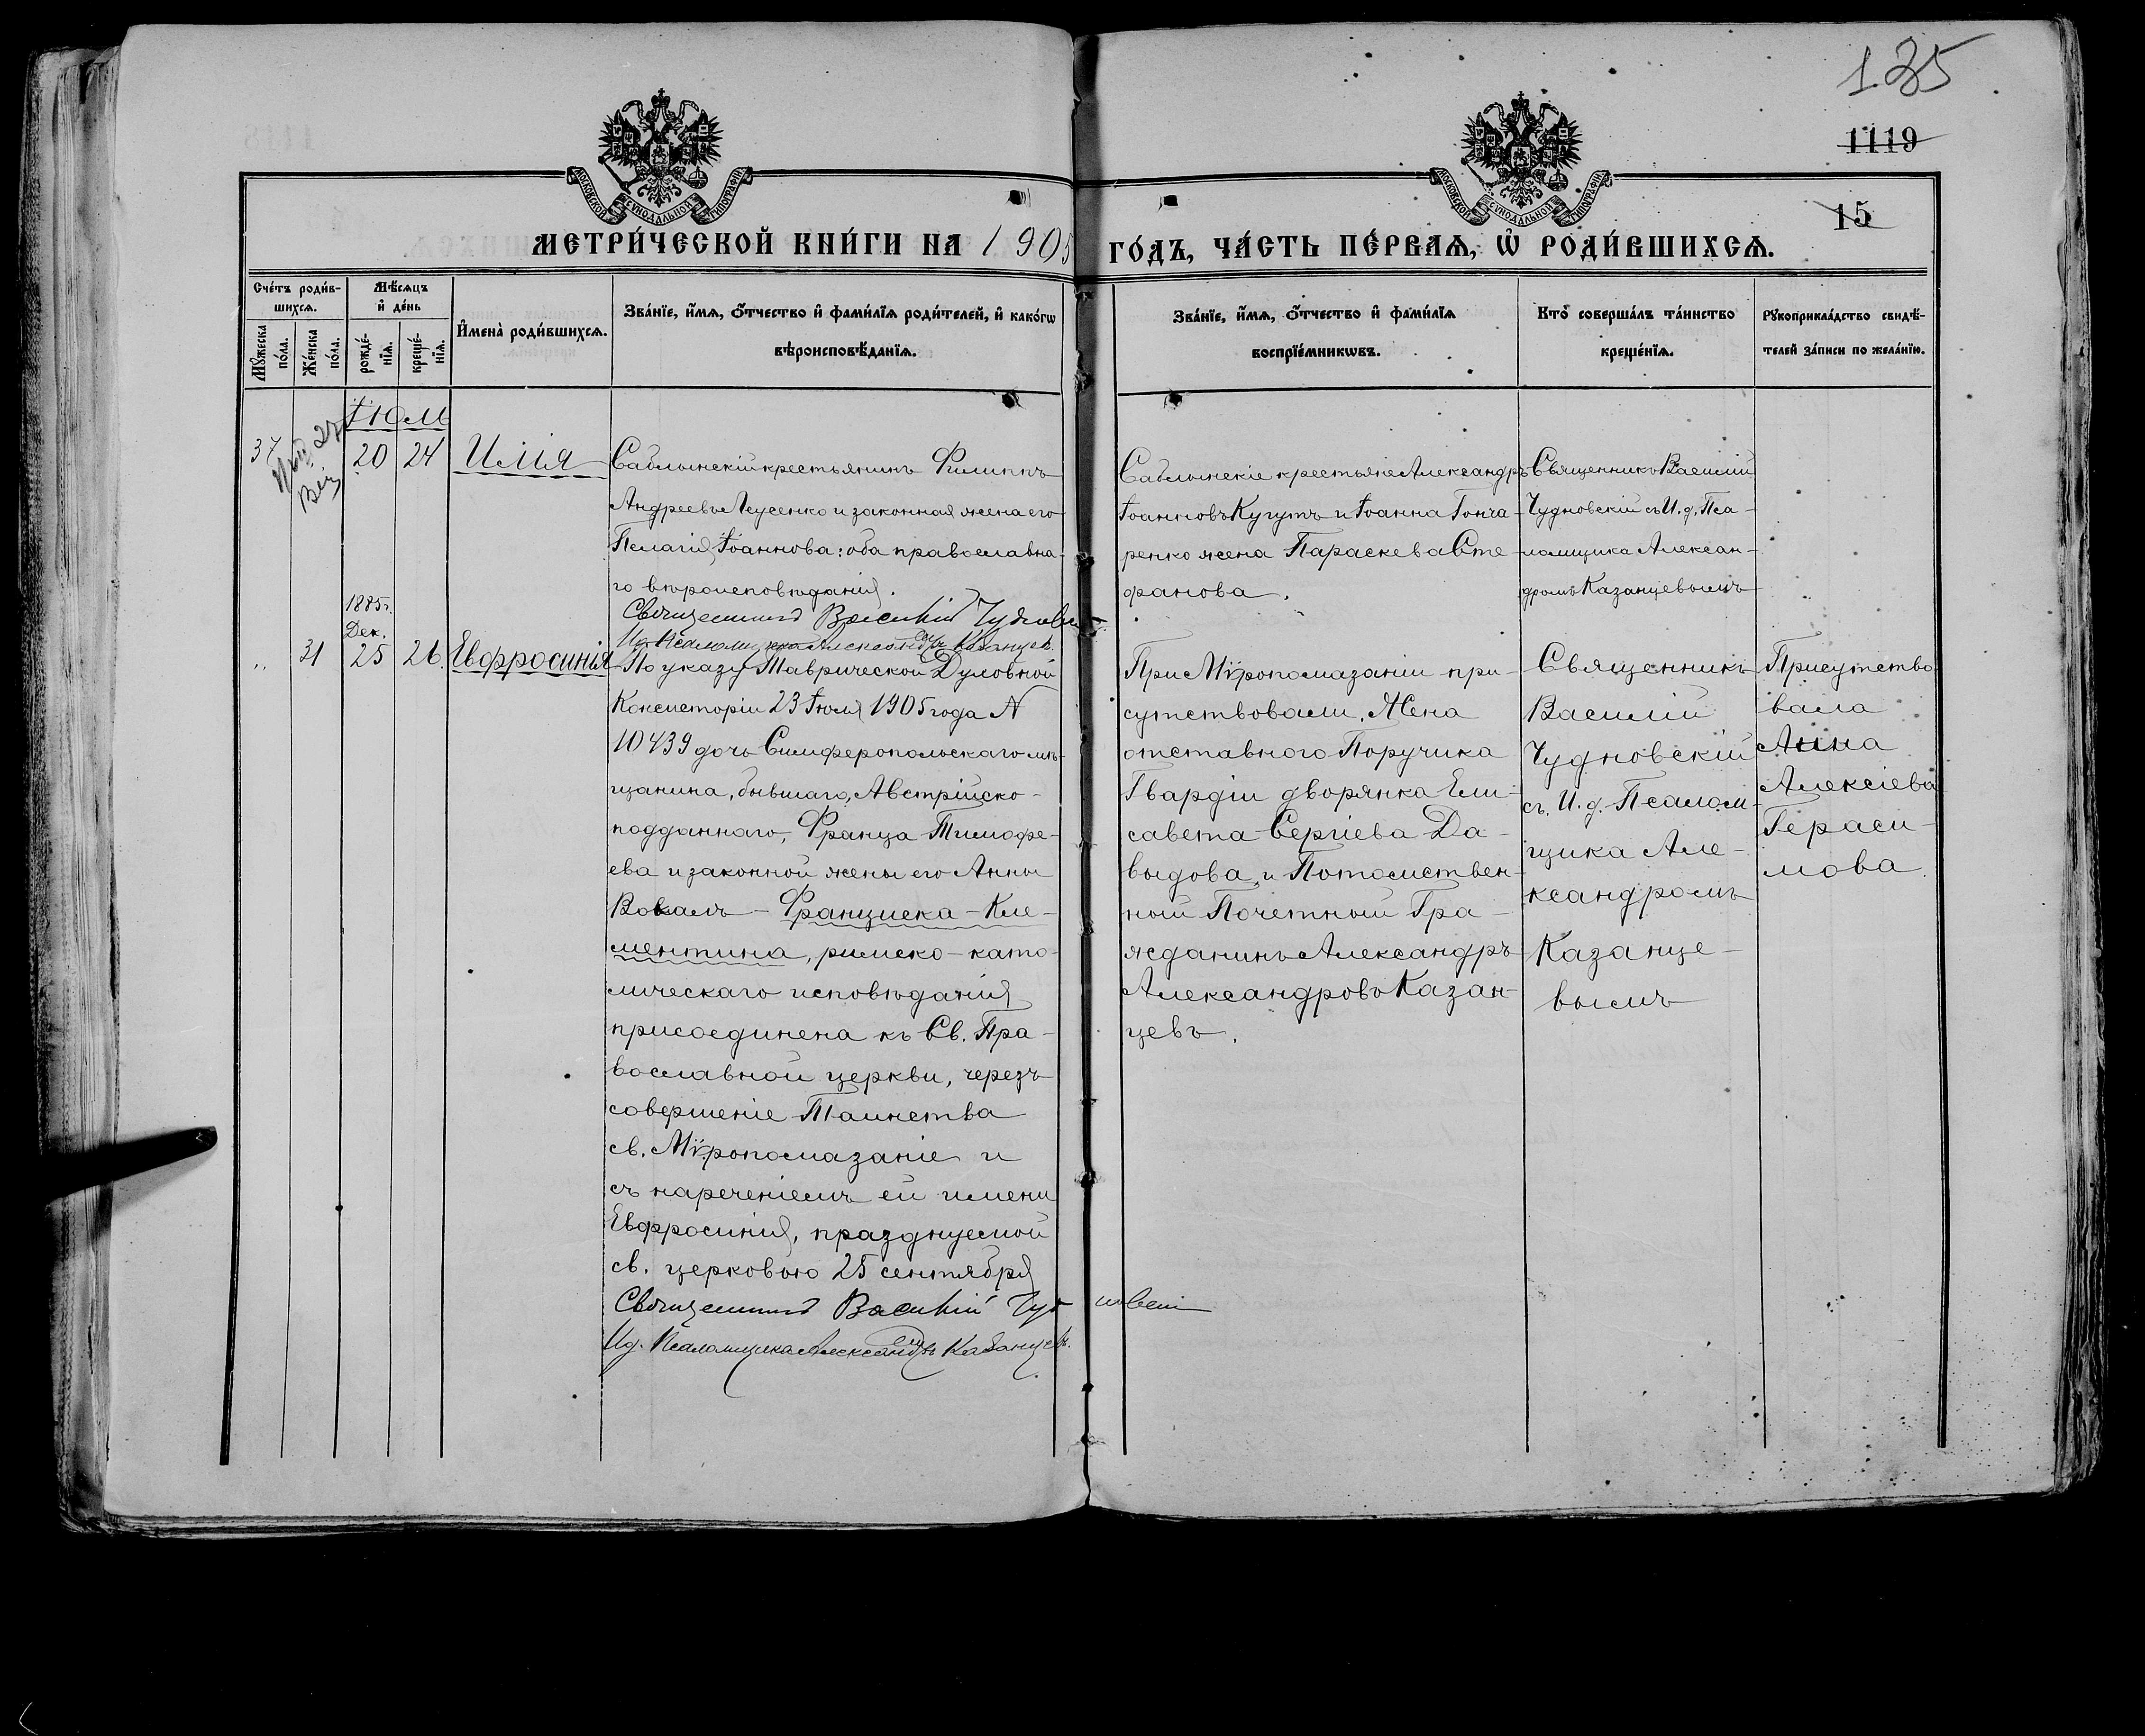 135
1119
15
МОСКОВСКОЙ СѴНОДАЛЬНОЙ ТИПОГРАФІИ
МОСКОВСКОЙ СѴНОДАЛЬНОЙ ТИПОГРАФІИ
МЕТРИ́ЧЕСКОЙ КНИ́ГИ НА 1905 ГО́ДЪ, ЧА́СТЬ ПЕ́РВАѦ, Ѽ РОДИ́ВШИХСѦ.
Сче́тъ роди́в-
шихсѧ.
Мꙋ́жеска
по́ла.
Же́нска
по́ла.
Мѣ́сѧцъ
и҆ де́нь
рожде́-
нїѧ.
креще́-
нїѧ.
И҆мена̀ роди́вшихсѧ.
Зва́нїе, и҆́мѧ, ѻ҆́тчество и҆ фами́лїѧ роди́телей, и҆ како́гѡ
вѣроисповѣ́данїѧ.
Зва́нїе, и҆́мѧ, ѻ҆́тчество и҆ фами́лїѧ
воспрїе́мникѡвъ.
Кто̀ соверша́лъ та́инство
креще́нїѧ.
Рꙋкоприкла́дство свидѣ́-
телей за́писи по жела́нїю.
Іюль
37
20 24 Илія
Саблынскій крестьянинъ Филиппъ
Андреевъ Леусенко и законная жена его
Пелагія Іоаннова: оба православна-
го вѣроисповѣданія.
Священникъ Василій Чудновскій
Ид. Псаломщика Александръ Казанцевъ.
Саблынскіе крестьяне Александръ
Іоанновъ Кугутъ и Іоанна Гонча-
ренко жена Параскева Сте-
фанова.
Священникъ Василій
Чудновскій съ И. д. Пса-
ломщика Алексан-
дромъ Казанцевымъ
1885г.
Дек.
„ 31 25 26. Евфросинія
По указу Таврической Духовной
Консисторіи 23 Іюля 1905 года N
10439 дочь Симферопольскаго мѣ-
щанина, бывшаго, Австрійско-
подданнаго, Франца Тимофе-
ева и законной жены его Анны
Вовкалъ - Франциска - Кле-
ментина, римско-като-
лическаго исповѣданія
присоединена къ Св. Пра-
вославной церкви, черезъ
совершеніе Таинства
св. Мѵропомазаніе и
съ нареченіемъ ей имени
Евфросинія, празднуемой
св. церковью 25 сентября
Священникъ Василій Чудновскій
Ид. Псаломщика Александръ Казанцевъ.
При Мѵропомазаніи при-
сутствовали, Жена
отставного Поручика
Гвардіи дворянка Ели-
савета Сергіева Да-
выдова, и Потомствен-
ный Почетный Гра-
жданинъ Александръ
Александровъ Казан-
цевъ.
Священникъ
Василій
Чудновскій
съ. И. д. Псалом-
щика Але-
ксандромъ
Казанце-
вымъ
Присутство
вала
Анна
Алексіева
Гераси-
мова.